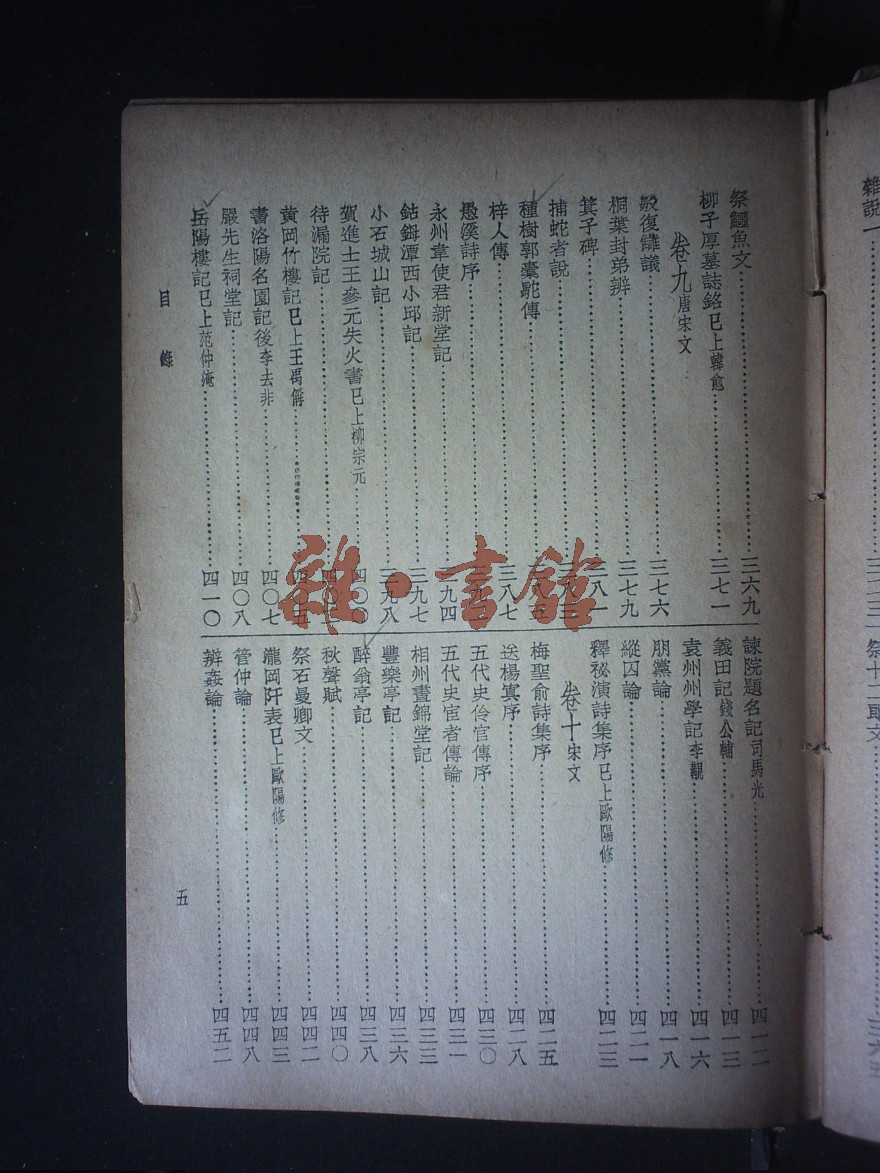 祭鱷魚文 三六九
柳子厚墓誌銘已上韓愈 三七一
卷九唐宋文
駁復讎議 三七六
桐葉封弟辨 三七九
箕子碑 三八一
捕蛇者說
種樹郭橐駝傳
梓人傳 三八七
愚溪詩序
永州韋使君新堂記 三九四
鈷鉧潭西小邱記 三九七
小石城山記 三九八
賀進士王參元失火書已上柳宗元 四〇〇
待漏院記
黃岡竹樓記已上王禹偁
書洛陽名園記後李去非 四〇七
嚴先生祠堂記 四〇八
岳陽樓記已上范仲淹 四一〇
諫院題名記司馬光 四一二
義田記錢公輔 四一三
袁州州學記李覯 四一六
朋黨論 四一八
縱囚論 四二一
釋祕演詩集序已上歐陽修 四二三
卷十宋文
梅聖俞詩集序 四二五
送楊寘序 四二八
五代史伶官傳序 四三〇
五代史宦者傳論 四三一
相州晝錦堂記 四三三
豐樂亭記 四三六
醉翁亭記 四三八
秋聲賦 四四〇
祭石曼卿文 四四二
瀧岡阡表已上歐陽修 四四三
管仲論 四四八
辨姦論 四五二
目錄
五
雜說一
三二三
祭十二郎文
雜·書館